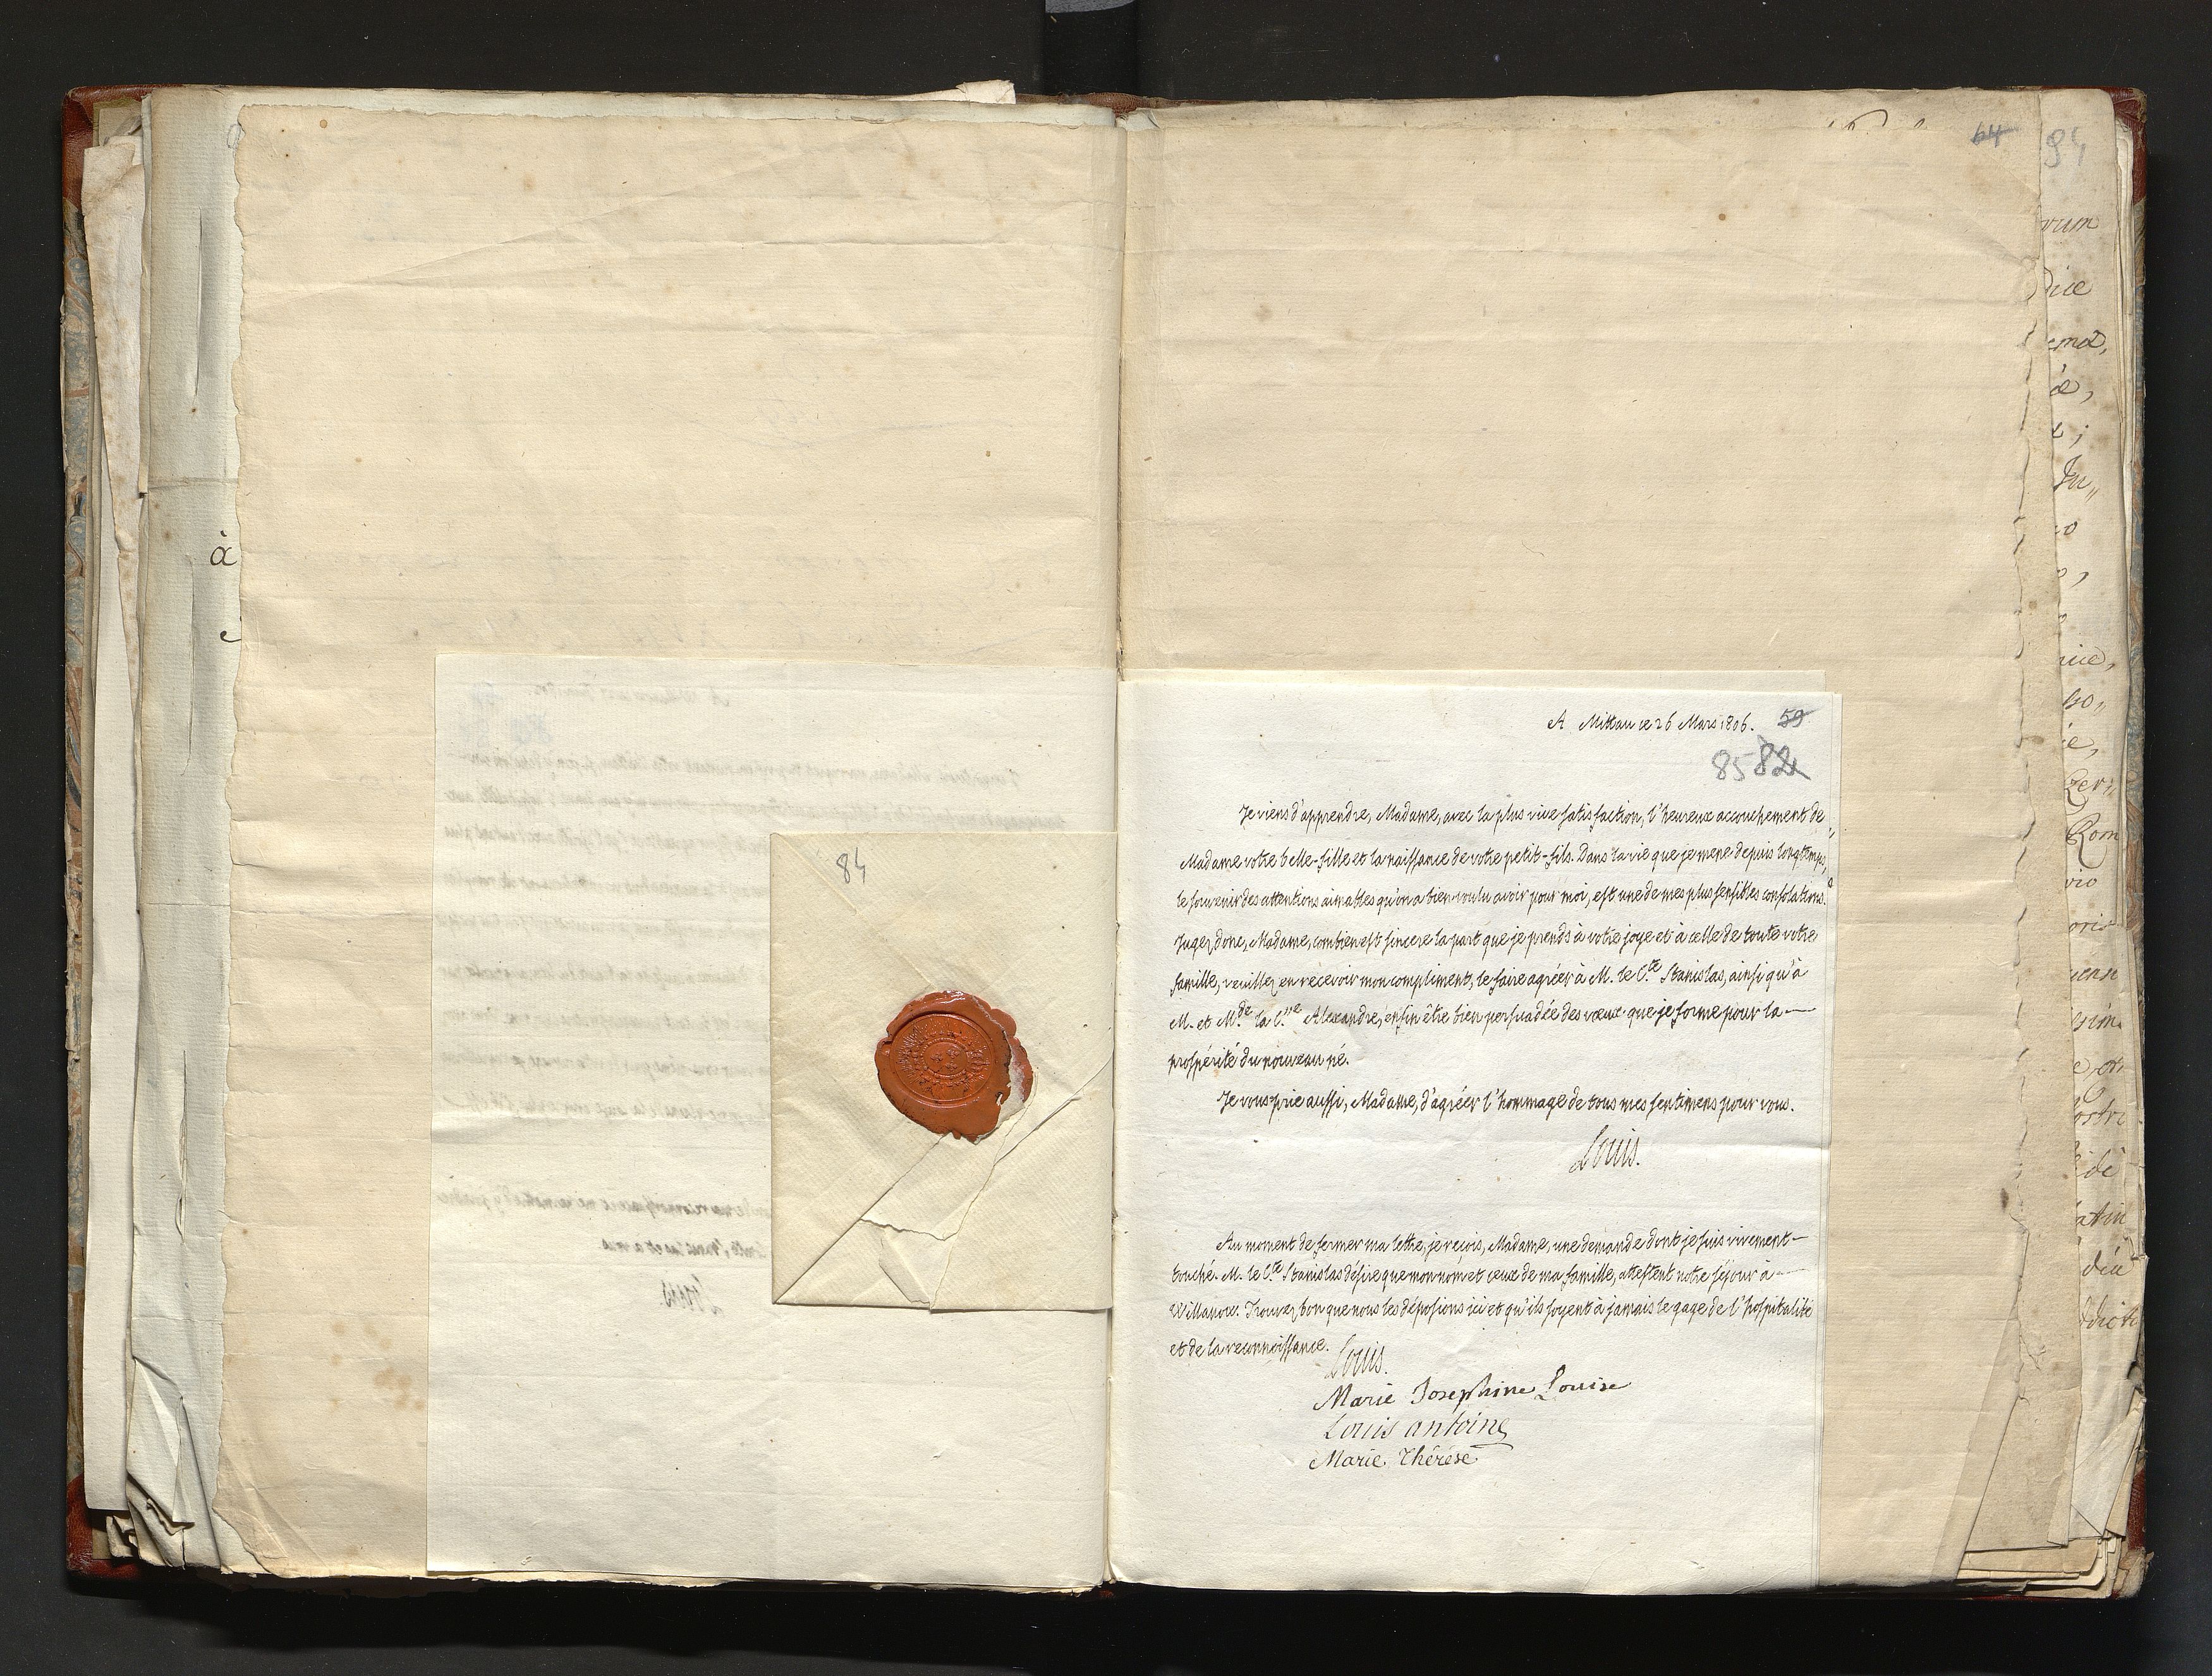 à
84
64
84
A Mittau ce 26 Mars 1806. 59
85 82
Je viens d'apprendre, Madame, avec la plus vive satisfaction, l'heureux accouchement de
Madame votre belle-fille et la naissance de votre petit-fils. Dans la vie que je mene depuis longtemps,
le souvenir des attentions aimables qu'on a bien voulu avoir pour moi, est une de mes plus sensibles consolations.
Jugez donc, Madame, combien est sincere la part que je prends à votre joye et à celle de toute votre
famille, veuillez en recevoir mon compliment, le faire agréer à M. le C.te Stanislas, ainsi qu'à
M. et M.de la C.sse Alexandre, enfin être bien persuadée des vœux que je forme pour la
prospérité du nouveau né.
Je vous prie aussi, Madame, d'agréer l'hommage de tous mes sentimens pour vous.
Louis.
Au moment de fermer ma lettre, je reçois, Madame, une demande dont je suis vivement
touché. M. le C.te Stanislas désire que mon nom et ceux de ma famille, attestent notre séjour à
Willanow. Trouvez bon que nous les déposions ici et qu'ils soyent à jamais le gage de l'hospitalité
et de la reconnoissance.
Louis.
Marie Josephine Louise
Louis antoine
Marie Thérèse